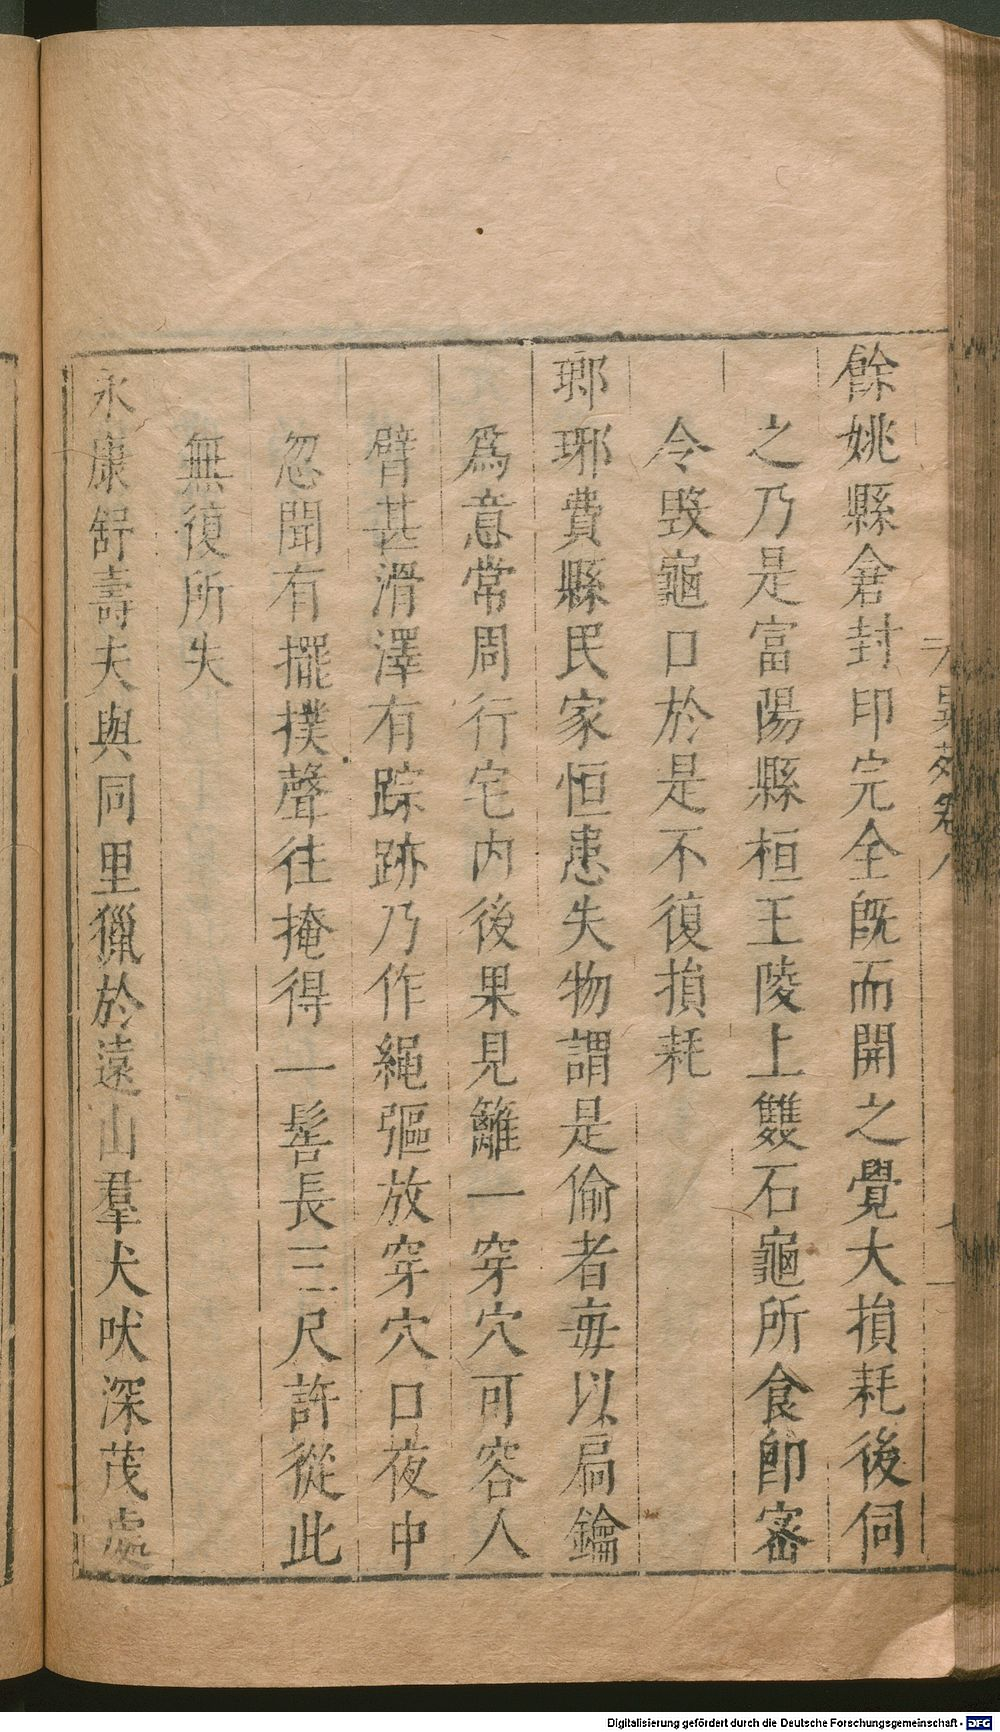 餘姚縣倉封印完全旣而開之覺大損耗後伺
之乃是富陽縣桓王陵上雙石龜所食卽密
令毀龜口於是不復損耗
瑯琊費縣民家恒患失物謂是偷者每以扃鑰
爲意常周行宅內後果見籬一穿穴可容人
臂甚滑澤有踪跡乃作繩彄放穿穴口夜中
忽聞有擺撲聲往掩得一髻長三尺許從此
無復所失
永康舒壽夫與同里獵於遠山羣犬吠深茂處
異苑卷八
Digitalisierung gefördert durch die Deutsche Forschungsgemeinschaft - DFG